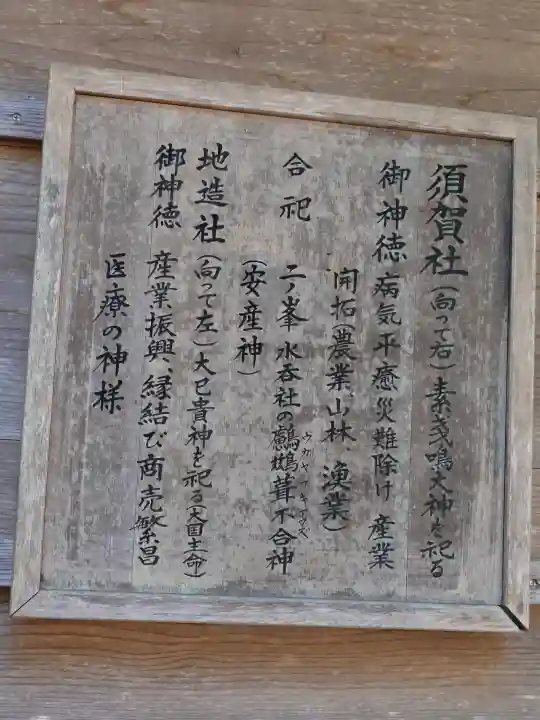 須賀社(向って右)素戔鳴大神を祀る
御神徳 病気平癒災難除け 産業
開拓(農業、山林、漁業)
合祀 二ノ峯 水呑社の鸕鶿葺不合神
(安産神)
地造社(向って左)大己貴神を祀る(大国主命)
御神徳 産業振興、縁結び商売繁昌
医療の神様